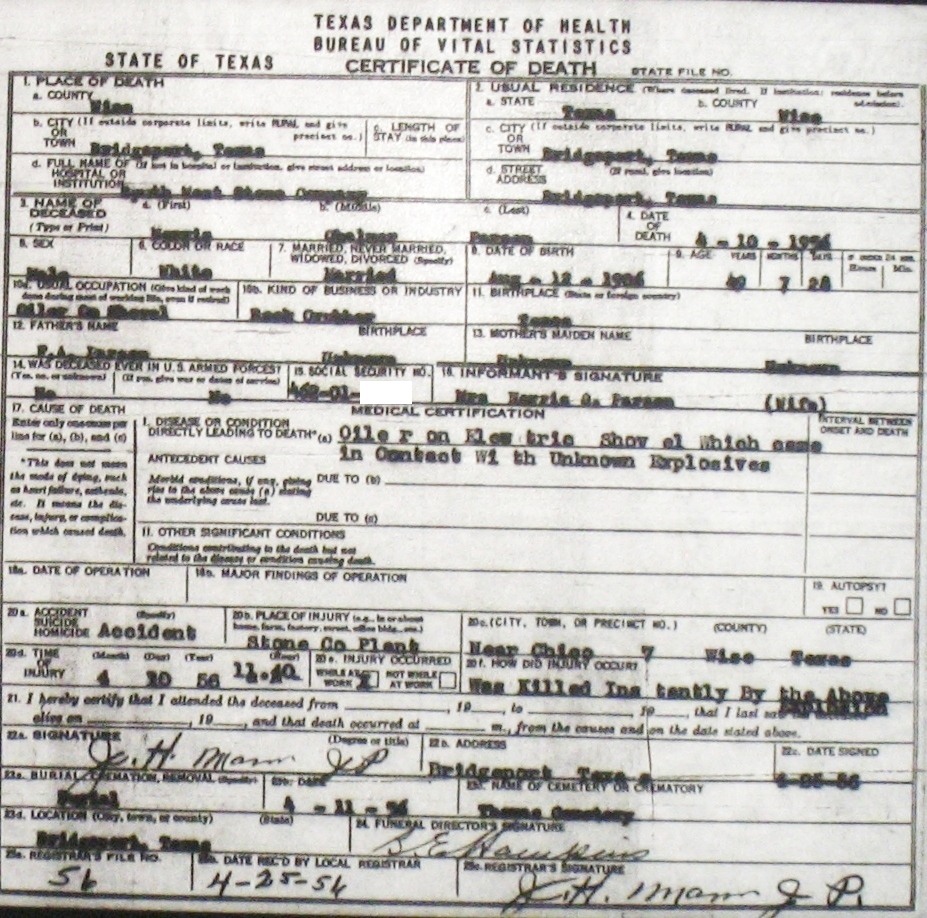 TEXAS DEPARTMENT OF HEALTH
BUREAU OF VITAL STATISTICS
STATE OF TEXAS CERTIFICATE OF DEATH STATE FILE NO.
1. PLACE OF DEATH
a. COUNTY Wise
2. USUAL RESIDENCE (Where deceased lived. If institution: residence before admission).
a. STATE Texas b. COUNTY Wise
b. CITY (If outside corporate limits, write RURAL and give precinct no.) OR TOWN Bridgeport, Texas
c. LENGTH OF STAY (in this place)
c. CITY (If outside corporate limits, write RURAL and give precinct no.) OR TOWN Bridgeport, Texas
d. FULL NAME OF (If not in hospital or institution, give street address or location) HOSPITAL OR INSTITUTION West Stone Company
d. STREET ADDRESS (If rural, give location) Bridgeport, Texas
3. NAME OF DECEASED (Type or Print)
a. (First) b. (Middle) c. (Last)
4. DATE OF DEATH 4 - 10 - 1956
5. SEX Male
6. COLOR OR RACE White
7. MARRIED, NEVER MARRIED, WIDOWED, DIVORCED (Specify) Married
8. DATE OF BIRTH Aug - 12 - 1906
9. AGE YEARS 49 MONTHS 7 DAYS 28 IF UNDER 24 HRS. Hours Min.
10a. USUAL OCCUPATION (Give kind of work done during most of working life, even if retired) Oiler On Shovel
10b. KIND OF BUSINESS OR INDUSTRY Rock Crusher
11. BIRTHPLACE (State or foreign country) Texas
12. FATHER'S NAME BIRTHPLACE Unknown
13. MOTHER'S MAIDEN NAME Unknown BIRTHPLACE Unknown
14. WAS DECEASED EVER IN U.S. ARMED FORCES? (Yes, no, or unknown) No (If yes, give war or dates of service) No
15. SOCIAL SECURITY NO. 462-01-
16. INFORMANT'S SIGNATURE Mrs (Wife)
17. CAUSE OF DEATH
Enter only one cause per line for (a), (b), and (c)
*This does not mean the mode of dying, such as heart failure, asthenia, etc. It means the disease, injury, or complication which caused death.
MEDICAL CERTIFICATION
INTERVAL BETWEEN ONSET AND DEATH
I. DISEASE OR CONDITION DIRECTLY LEADING TO DEATH* (a) Oile r on Elew tric Shov el Which came
in Contact Wi th Unknown Explosives
ANTECEDENT CAUSES
Morbid conditions, if any, giving rise to the above cause (a) stating the underlying cause last.
DUE TO (b)
DUE TO (c)
II. OTHER SIGNIFICANT CONDITIONS
Conditions contributing to the death but not related to the disease or condition causing death.
18a. DATE OF OPERATION
18b. MAJOR FINDINGS OF OPERATION
19. AUTOPSY? YES NO
20a. ACCIDENT SUICIDE HOMICIDE (Specify) Accident
20b. PLACE OF INJURY (e.g., in or about home, farm, factory, street, office bldg., etc.) Stone Co Plant
20c. (CITY, TOWN, OR PRECINCT NO.) (COUNTY) (STATE)
Near Chico 7 Wise Texas
20d. TIME OF INJURY (Month) (Day) (Year) (Hour) 4 10 56
20e. INJURY OCCURRED WHILE AT WORK X NOT WHILE AT WORK
20f. HOW DID INJURY OCCUR?
Was Killed Ins tently By the Above
21. I hereby certify that I attended the deceased from , 19 , to , 19 , that I last saw the deceased
alive on , 19 , and that death occurred at m., from the causes and on the date stated above.
22a. SIGNATURE (Degree or title) J.H. Mann J P
22b. ADDRESS Bridgeport Texa s
22c. DATE SIGNED 4-25-56
23a. BURIAL, CREMATION, REMOVAL (Specify) Burial
23b. DATE 4 - 11 - 56
23c. NAME OF CEMETERY OR CREMATORY Thomas Cemetery
23d. LOCATION (City, town, or county) (State) Bridgeport, Texas
24. FUNERAL DIRECTOR'S SIGNATURE B.E. Hawkins
25a. REGISTRAR'S FILE NO. 56
25b. DATE REC'D BY LOCAL REGISTRAR 4-25-56
25c. REGISTRAR'S SIGNATURE J.H. Mann J P.